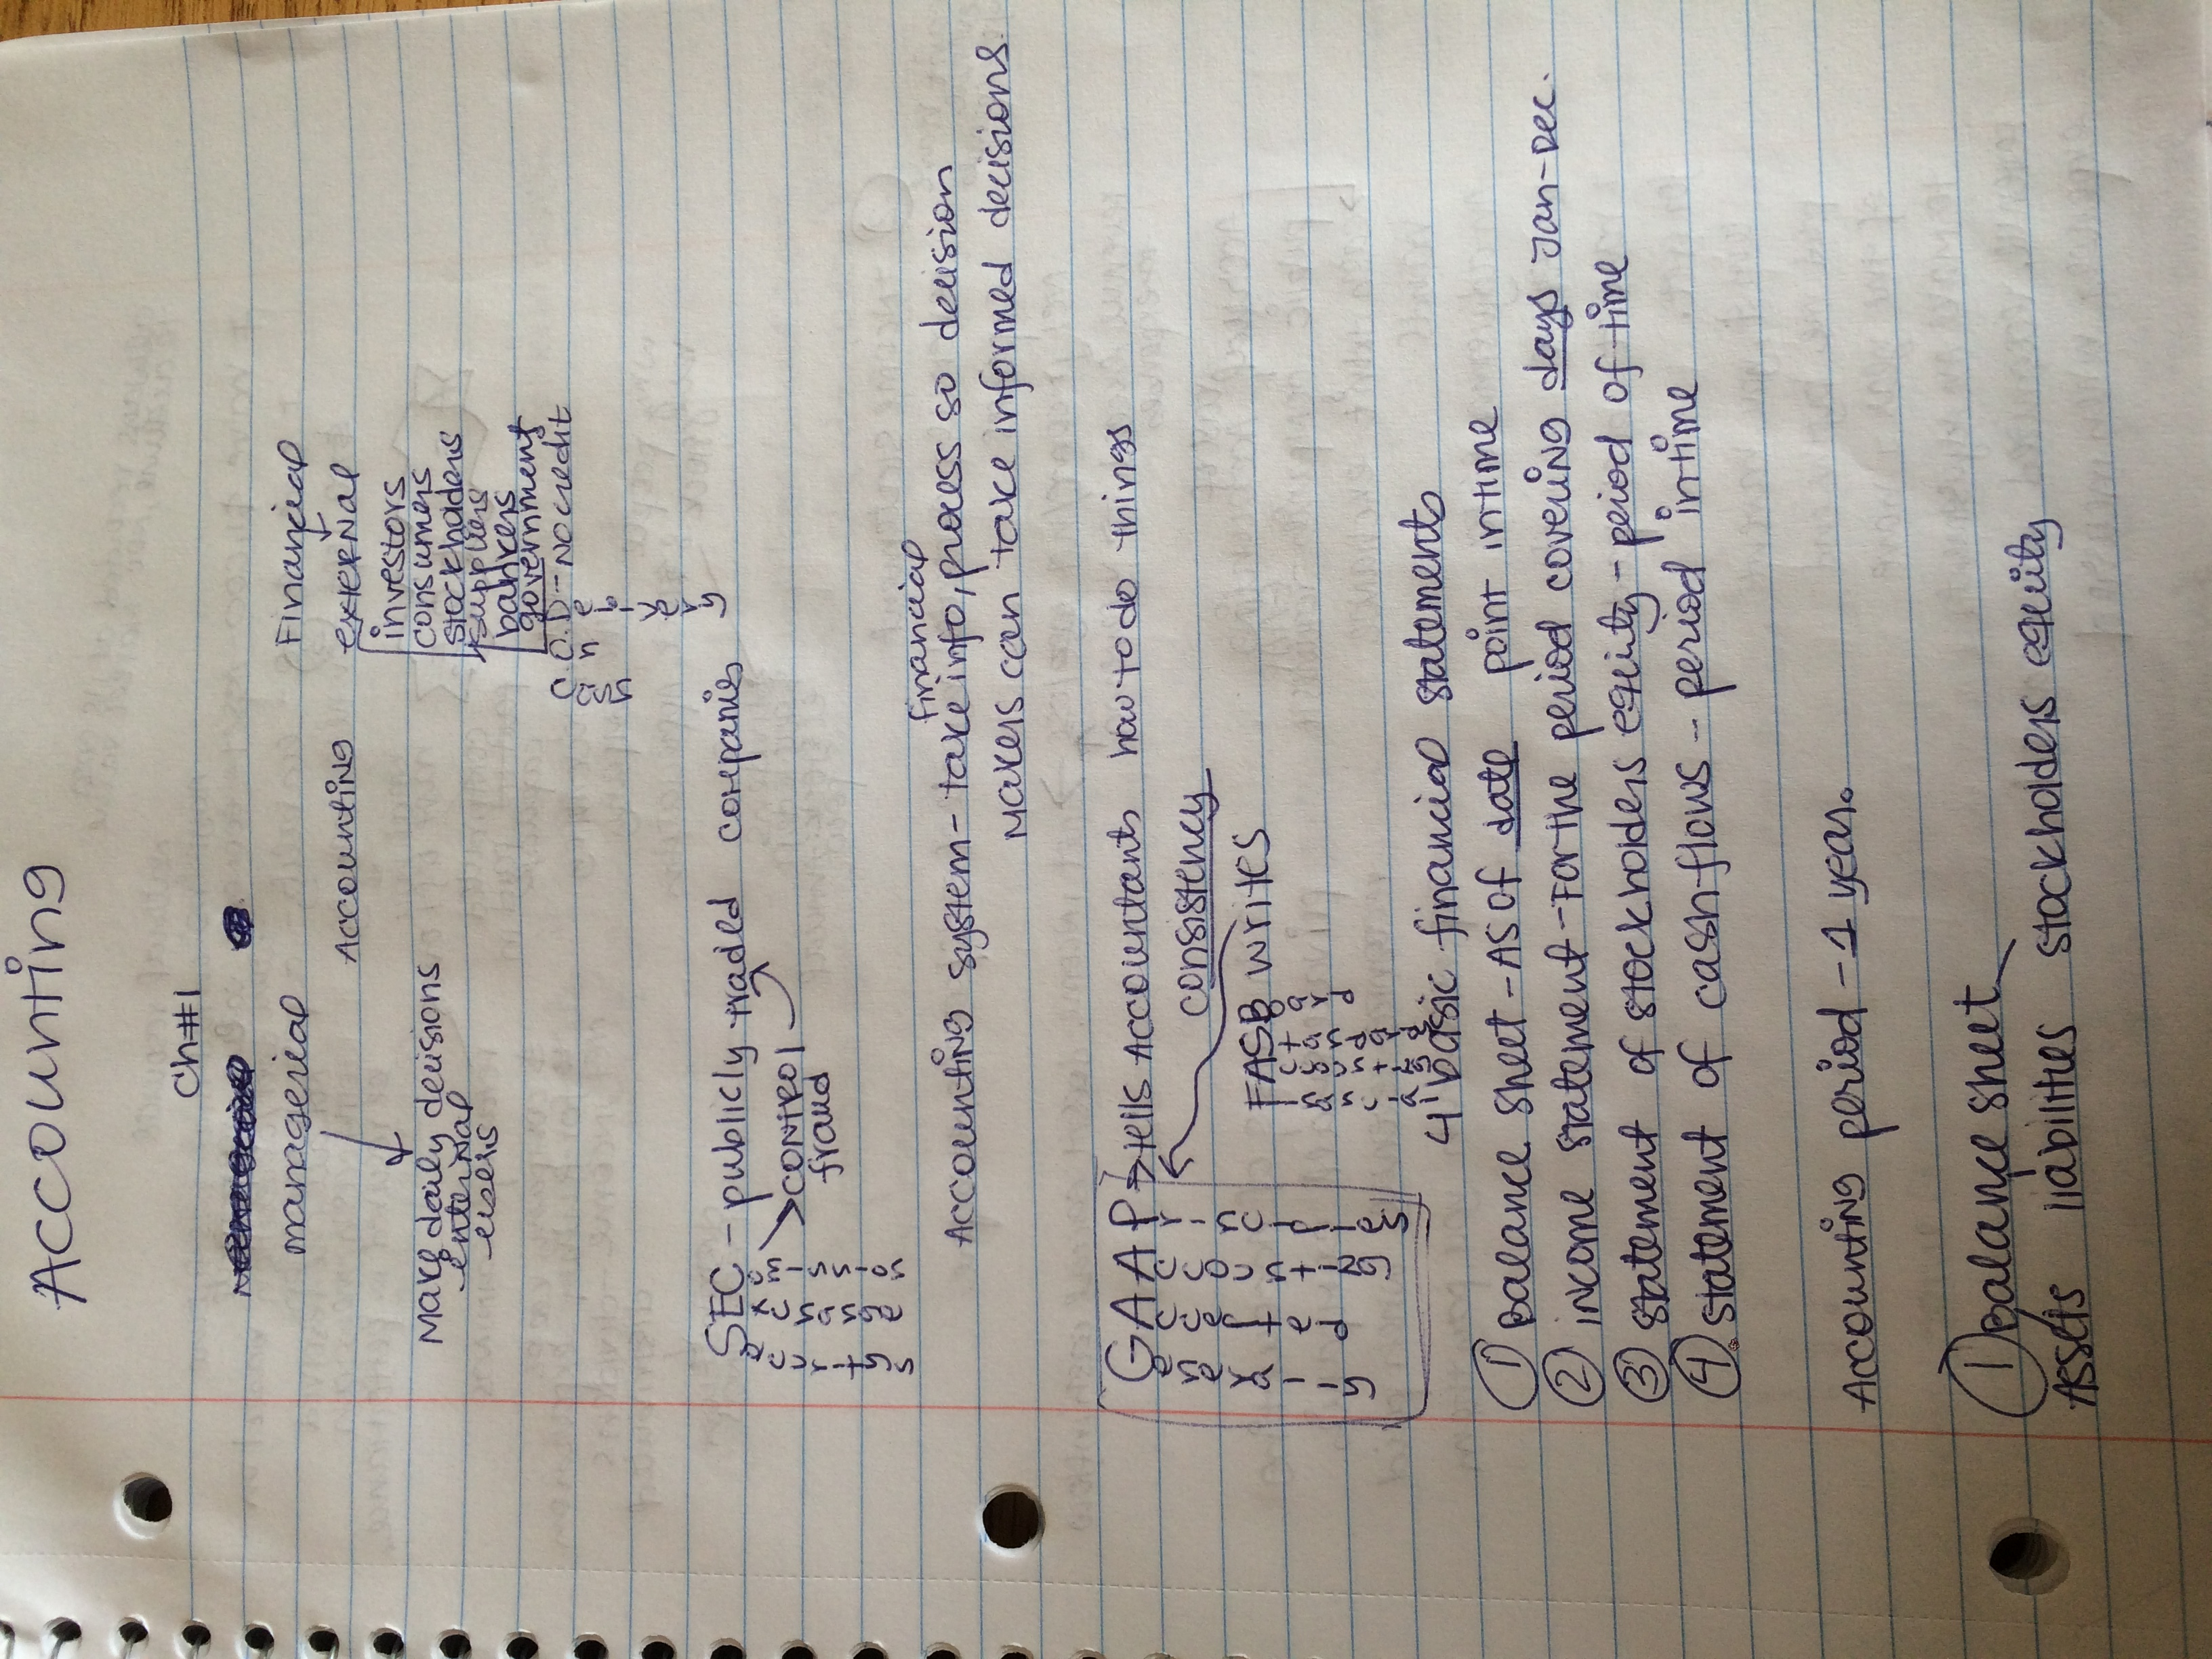 Accounting
Ch#1
managerial Financial
Accounting external
Make daily decisions investors
enternal consumers
users stockholders
suppliers
bankers
government
C.O.D-- NO credit
Cash
On
Delivery
SEC - publicly traded companies
Securitys Exchange Comission
> control
fraud
financial
Accounting system - take info, process so decision
makers can take informed decisions.
GAAP → tells Accountants how to do things
Generally Accepted Accounting Principles
consistency
FASB writes
Financial Accounting Standard Board
4 basic financial statements
① Balance sheet -- AS of date point in time
② income statement - For the period covering days Jan-Dec.
③ statement of stockholders equity - period of time
④ statement of cash flows -- period in time
Accounting period - 1 year.
① Balance sheet
Assets liabilities stockholders equity